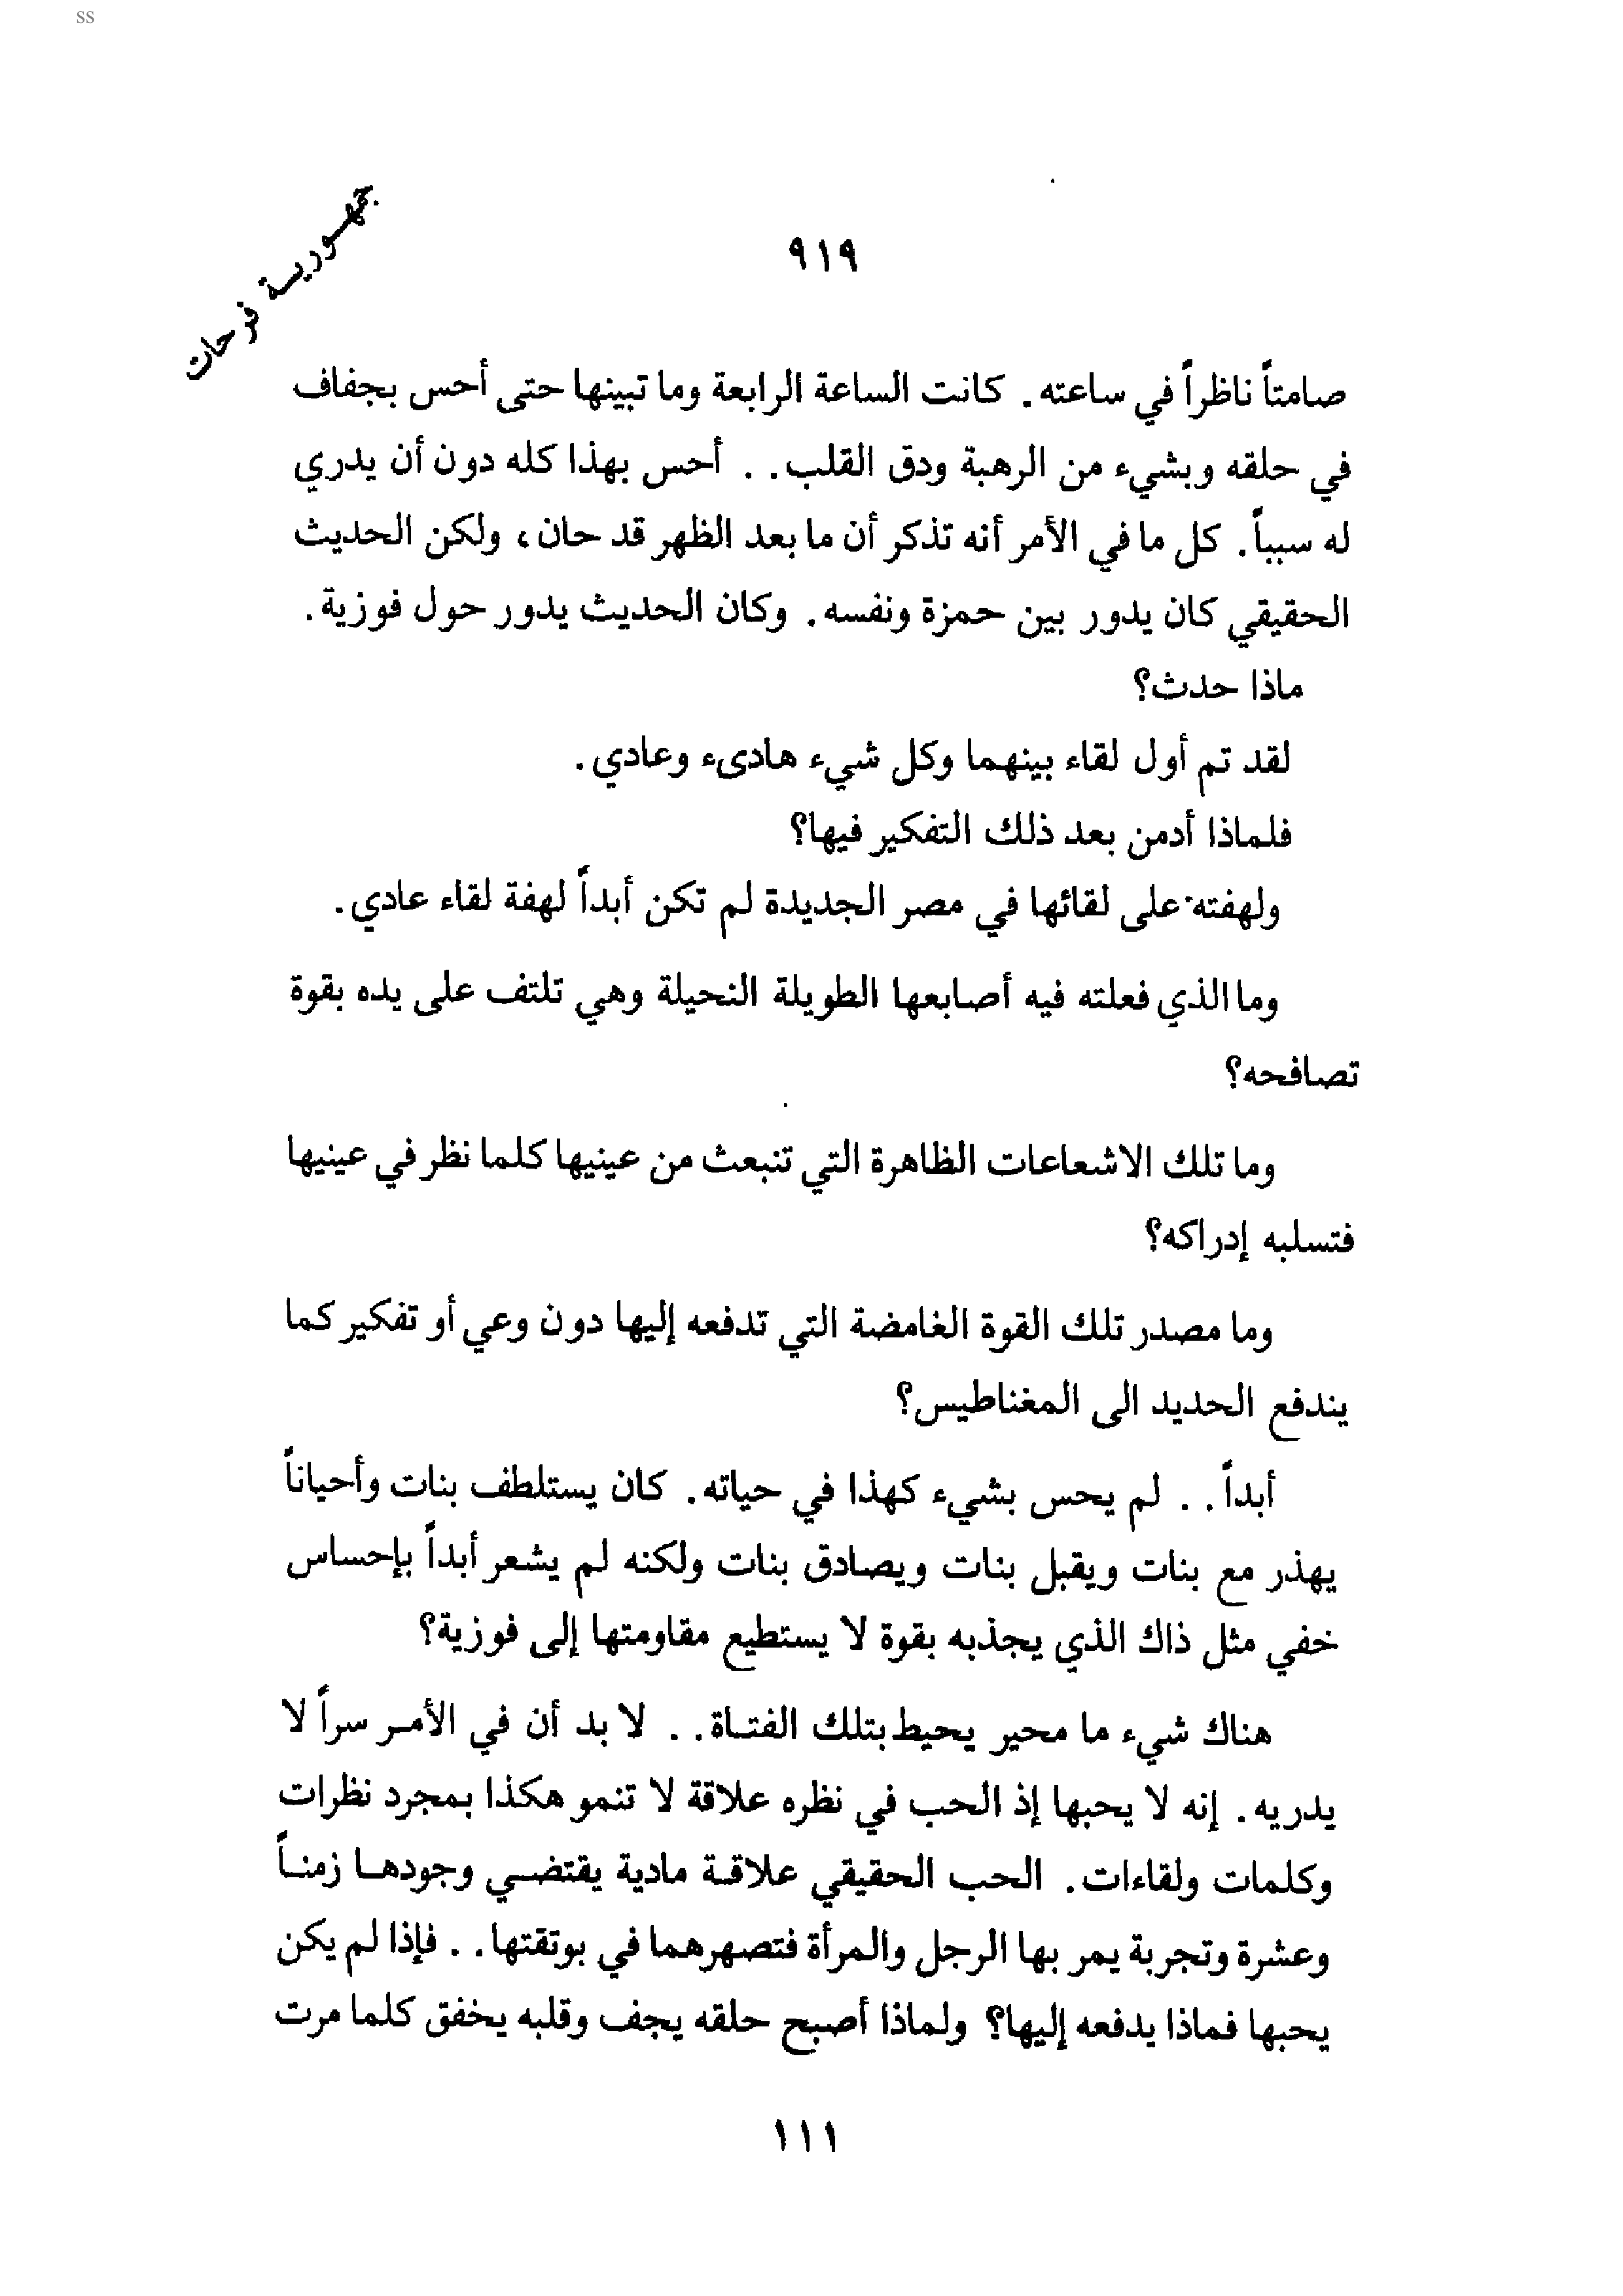 ss
جمهورية فرحات
٩١٩
صامتاً ناظراً في ساعته. كانت الساعة الرابعة وما تبينها حتى أحس بجفاف
في حلقه وبشيء من الرهبة ودق القلب. . أحس بهذا كله دون أن يدري
له سبباً. كل ما في الأمر أنه تذكر أن ما بعد الظهر قد حان، ولكن الحديث
الحقيقي كان يدور بين حمزة ونفسه. وكان الحديث يدور حول فوزية.
ماذا حدث؟
لقد تم أول لقاء بينهما وكل شيء هادىء وعادي.
فلماذا أدمن بعد ذلك التفكير فيها؟
ولهفته على لقائها في مصر الجديدة لم تكن أبداً لهفة لقاء عادي.
وما الذي فعلته فيه أصابعها الطويلة النحيلة وهي تلتف على يده بقوة
تصافحه؟
وما تلك الاشعاعات الظاهرة التي تنبعث من عينيها كلما نظر في عينيها
فتسلبه إدراكه؟
وما مصدر تلك القوة الغامضة التي تدفعه إليها دون وعي أو تفكير كما
يندفع الحديد الى المغناطيس؟
أبداً. . لم يحس بشيء كهذا في حياته. كان يستلطف بنات وأحياناً
يهذر مع بنات ويقبل بنات ويصادق بنات ولكنه لم يشعر أبداً بإحساس
خفي مثل ذاك الذي يجذبه بقوة لا يستطيع مقاومتها إلى فوزية؟
هناك شيء ما محير يحيط بتلك الفتاة. . لا بد أن في الأمر سراً لا
يدريه. إنه لا يحبها إذ الحب في نظره علاقة لا تنمو هكذا بمجرد نظرات
وكلمات ولقاءات. الحب الحقيقي علاقة مادية يقتضي وجودها زمناً
وعشرة وتجربة يمر بها الرجل والمرأة فتصهرهما في بوتقتها. . فإذا لم يكن
يحبها فماذا يدفعه إليها؟ ولماذا أصبح حلقه يجف وقلبه يخفق كلما مرت
١١١